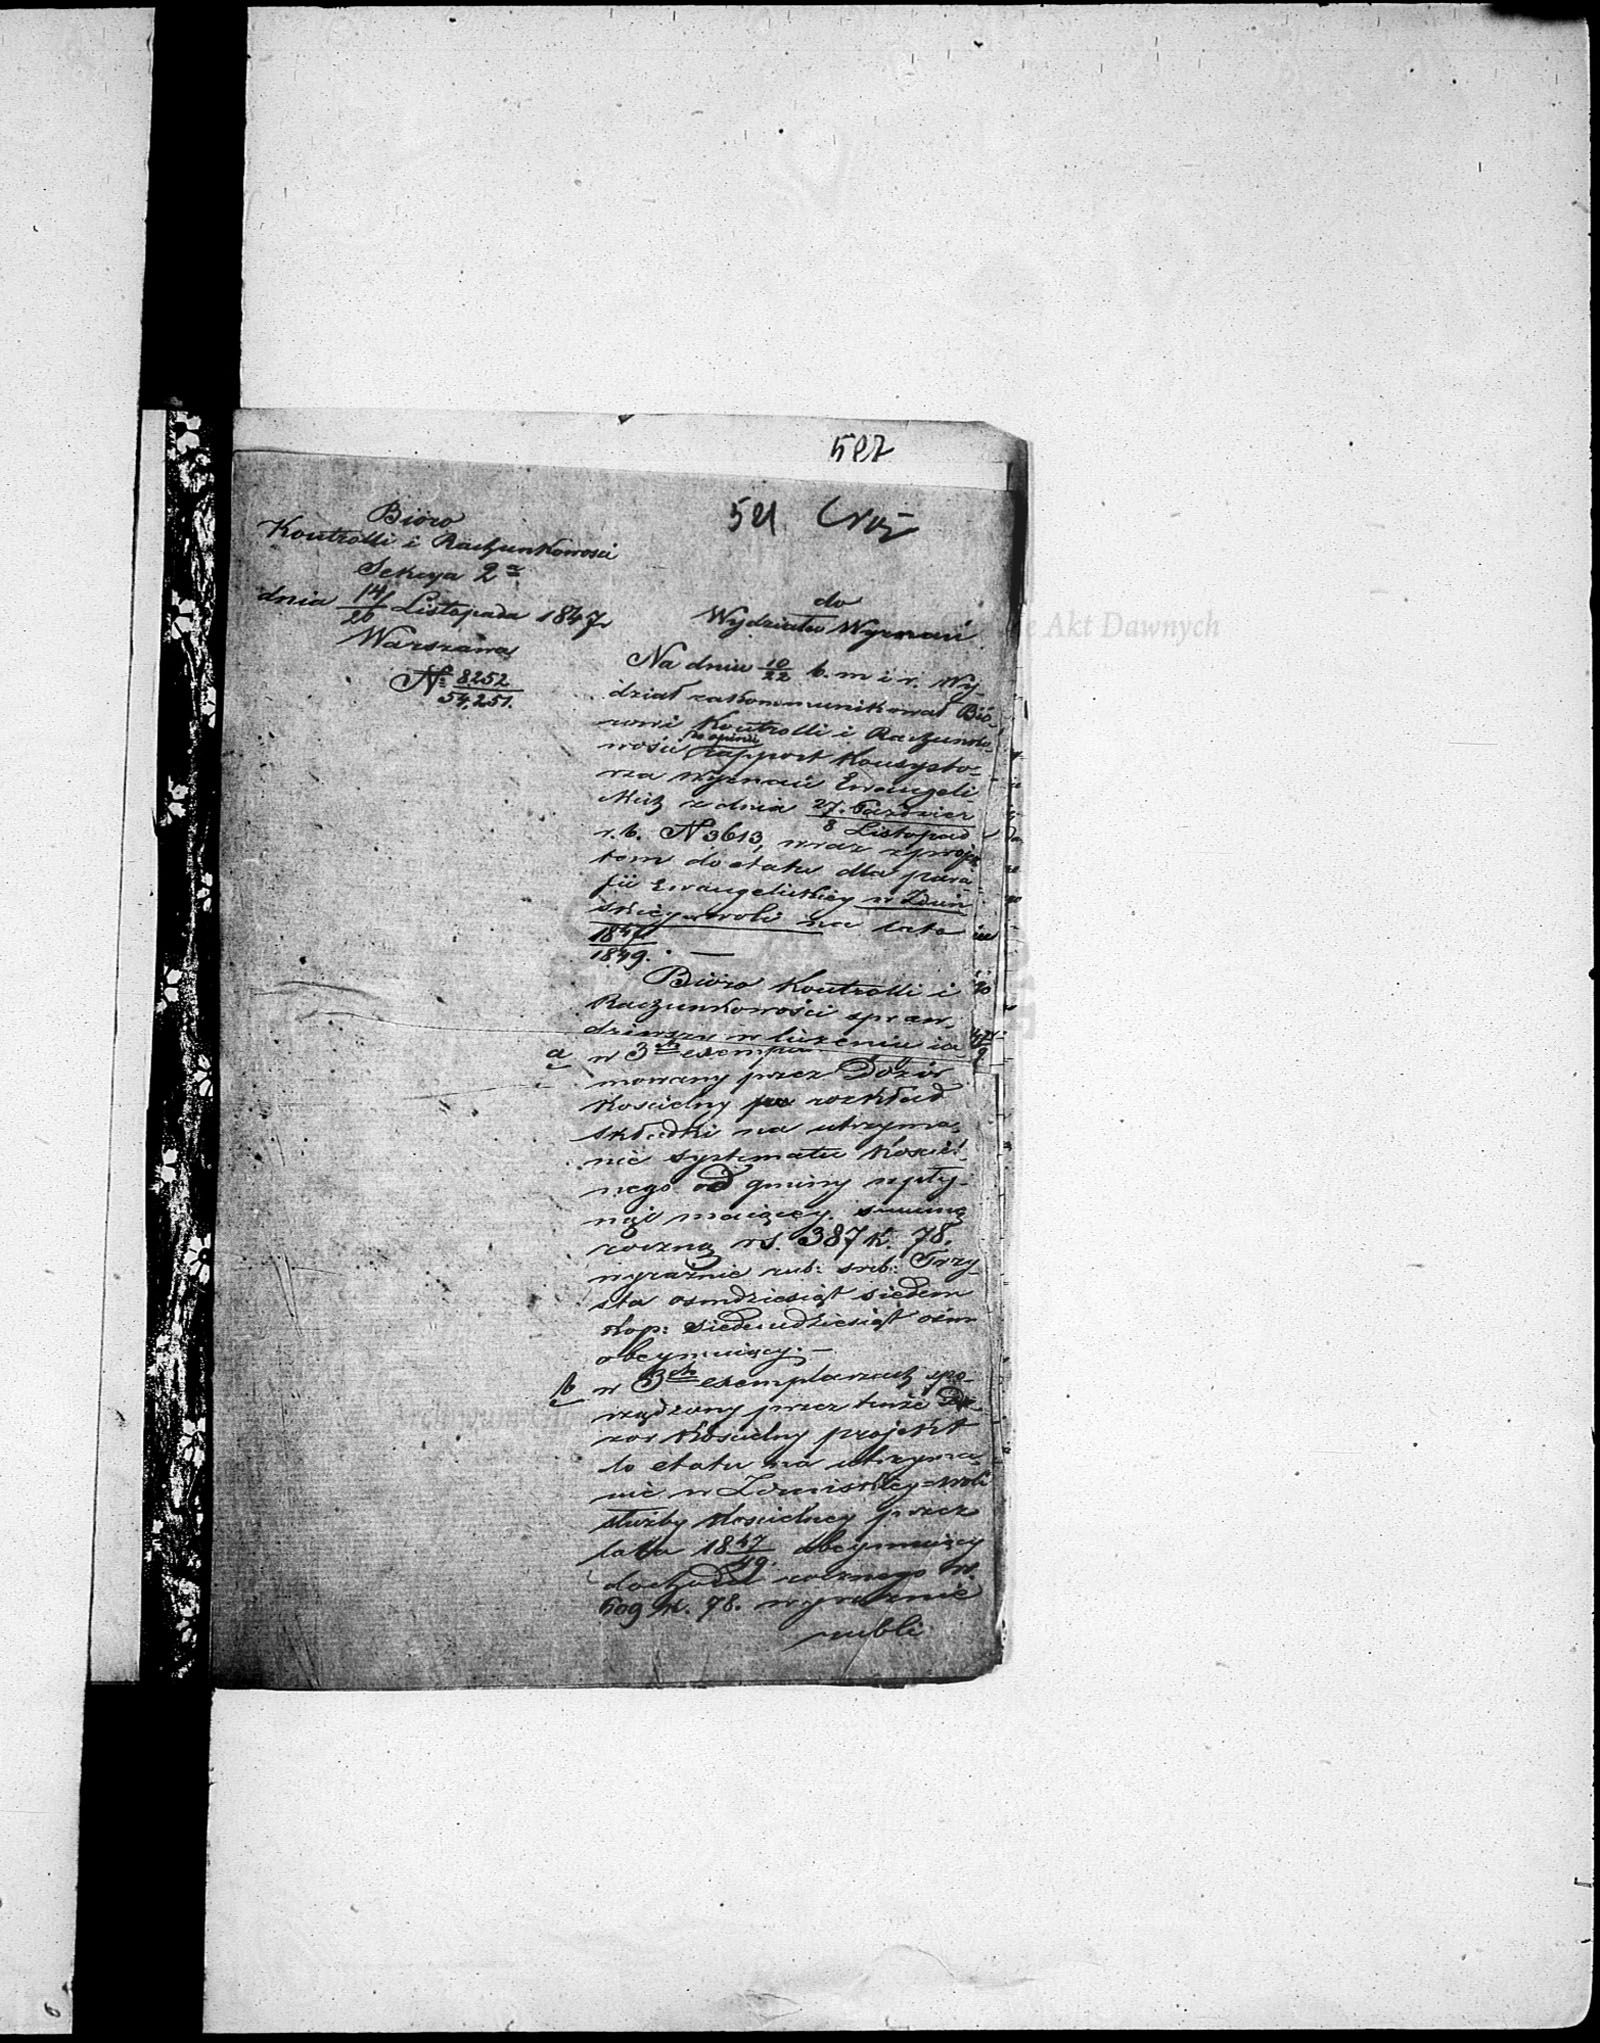 527
521
Bióro
Kontrolli i Rachunkowości
Sekcya 2ª
dnia 14/26 Listopada 1847 r.
Warszawa
N° 8252/54,251.
do
Wydziału Wyznań
Na dniu 10/22 b. m i r. Wy-
dział zakommunikował Bió-
rowi Kontrolli i Rachunko-
wości rapport Konsysto-
rza wyznań Ewangeli-
ckich z dnia 27. Paździer/8 Listopad
r. b. N 3613, wraz z proje-
tem do etatu dla para-
fii Ewangelickiey w Zduń-
skiey woli na lata
1847/1849. —
Bióro Kontrolli i
Rachunkowości spraw-
dziwszy w liczeniu
a w 3ch exempla
mowany przez Dozór
Kościelny rozkład
składki na utrzyma-
nie systematu Kościel-
nego od gminy wpły-
nąć maiącey. summę
roczną rs. 387 k. 78.
wyraźnie rub: sreb: Trzy-
sta osmdziesiąt siedem
kop: siedmdziesiąt ośm
obeymuiący. —
b w 3ch exemplarzach spo-
rządzony przez tenże Do-
zór Kościelny projekt
do etatu na utrzyma-
nie w Zduńskiey=woli
służby Kościelney przez
lata 1847/49. obeymuiący
dochodu rocznego rs.
609 k. 78. wyraźnie
rubli